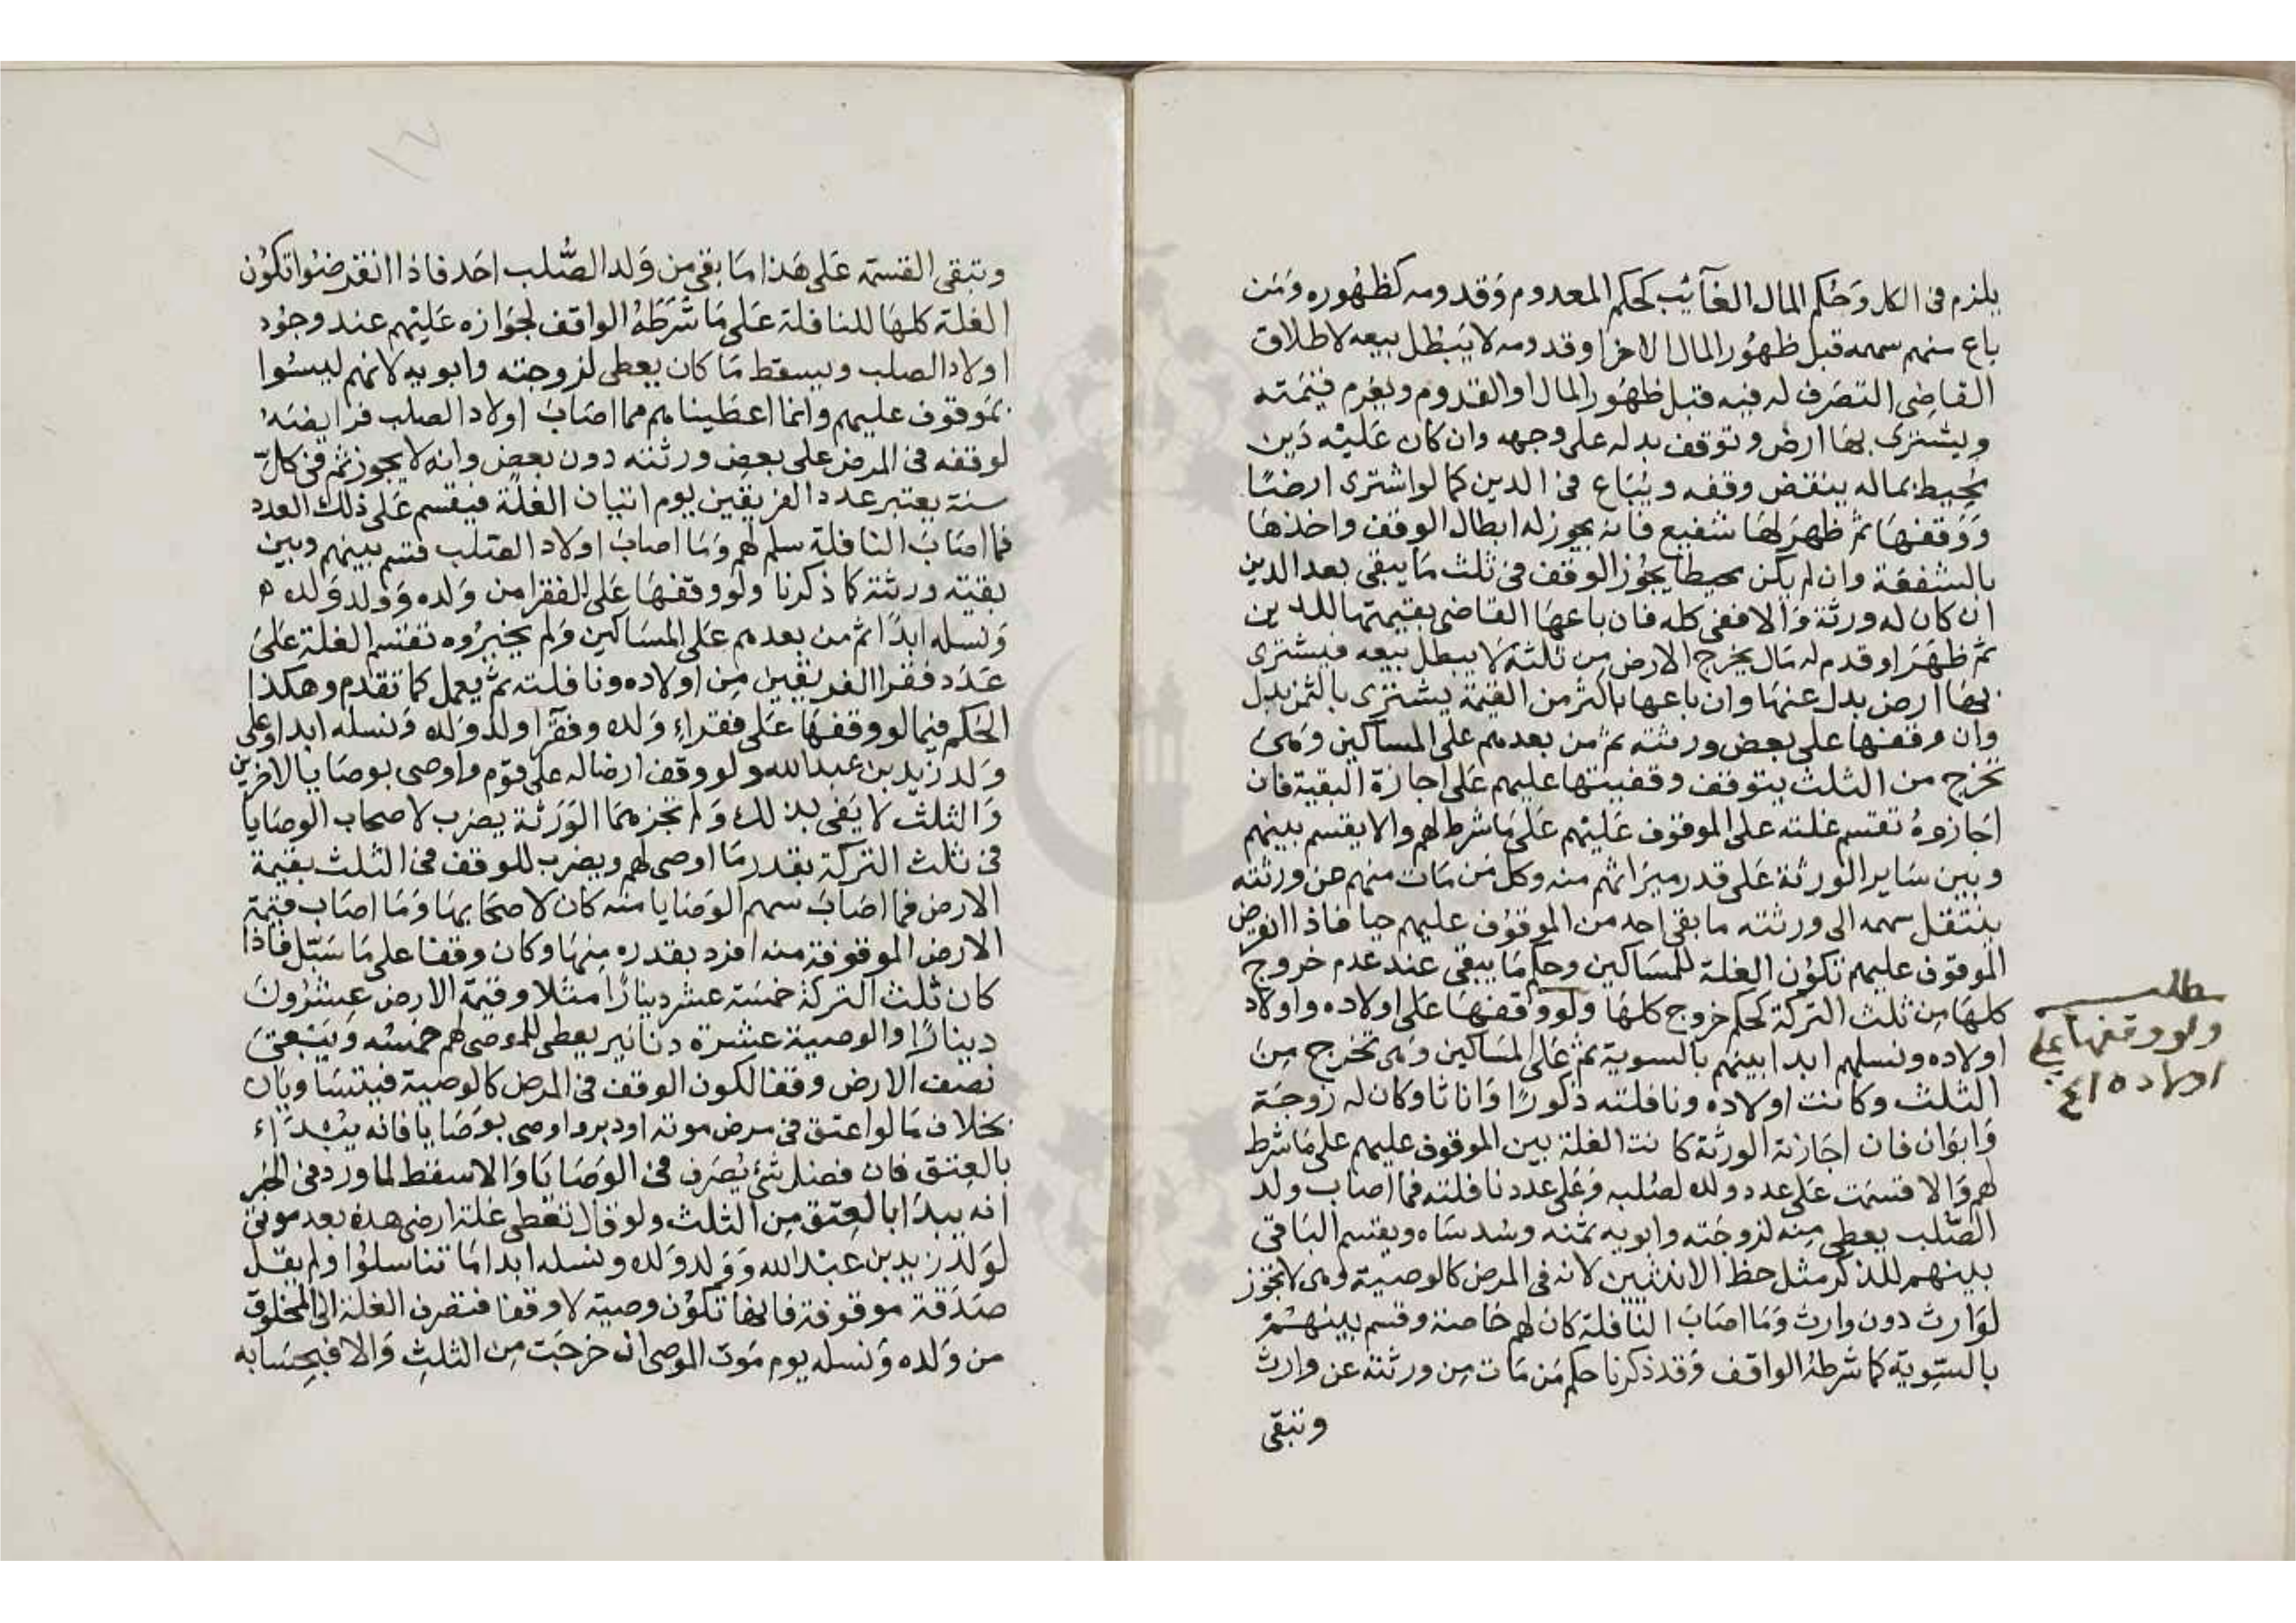 يلزم فى الكل وَحُكم المال الغآئب كحكم المعدوم وَقدومه كظهُوره وَمَن
باع منهم سهمه قبل ظهُور المال الاخر او قدومه لا يَبْطل بيعه لاطلاق
القاضِى التصَرف له فيه قبل ظهُور المال او القدوم ويغرم قيْمَته
ويشترى بهَا ارض وتوقف بدله على وجهه وان كان عَليْه دَين
يُحِيط بماله ينقض وقفه ويُبَاع فى الدين كما لو اشترى ارضًا
وَوَقفهَا ثم ظهَر لهَا شفيع فانه يجوز له ابطال الوقف واخذهَا
بالشفعَة وان لم يكن محيطا يجُوز الوقف فى ثلث مَا يبقى بعد الدين
ان كان له ورثة وَالا ففى كله فان باعهَا القاضى بقيمتها للدين
ثم ظهَرَ او قدم له مَال يخرج الارض من ثلثه لا يبطل بيعه فيشترى
بهَا ارض بدل عنهَا وان باعها باكثر من القيمة يشترى بالثمن بدل
وان وقفها على بعض ورثته ثم من بعدهم على المساكين وَهى
تخرج من الثلث يتوقف وقفيتها عليهم على اجازة البقية فان
اجَازوهُ تقسم غلته على الموقوف عَليْهم عَلى مَا شرط لهم والا يقسم بينهم
وبين سَاير الورثة عَلى قدر ميرَاثهم منه وكل مَن مَات منهم عن ورثته
ينتقل سهمه الى ورثته ما بقى احد من الموقوُف عليهم حيا فاذا انقرض
الموقوف عليهم تكوُن الغلة للمسَاكين وحكم مَا يبقى عند عدم خروج
كلهَا مِن ثلث التركة كحكم خروج كلهَا ولو وَقفهَا عَلى اولاده واولاد
اولاده ونسلهم ابدا بينهم بالسوية ثم عَلى المسَاكين وَهى تخرج مِنَ
الثلث وكانت اولاده ونافلته ذكورًا وَاناثا وكان له زوجَة
وَابَوَان فان اجَازته الورثة كانت الغلة بين الموقوف عليهم على مَا شرط
لهم وَالا قسمَت عَلى عدد ولده لصُلبه وَعَلى عدد نافلته فما اصَاب ولد
الصّلب يعطى مِنه لزوجَته وابويه ثمنه وسُدسَاه ويقسم البَاقى
بينهم للذكر مثل حظ الانثيين لانه فى المرض كالوصية وهى لا تجوز
لوَارث دون وارث وَمَا اصَابَ النافلة كان لهم خاصة وقسم بينهُمْ
بالسّوِية كما شرطهُ الواقف وَقد ذكرنا حكم مَن مَات مِن ورثته عن وارث
وتبقى
مطلب
ولو وقفها على
اولاده الخ
وتبقى القسمَة عَلى هَذا مَا بقى من وَلد الصُّلب احَد فاذا انقرضوُا تكوُن
الغلة كلهَا للنافلة عَلى مَا شَرَطَهُ الواقف لجَوَازه عَليْهم عند وجوُد
اولاد الصلب ويسقط مَا كان يعطى لزوجته وابويه لانهم ليسُوا
بمَوقوف عليهم وانما اعطَيناهم مما اصَابَ اولاد الصلب فرايضَهُ
لوقفه فى المرض على بعض ورثته دون بعض وانه لا يجوز ثم فى كلّ
سنة يعتبر عدد الفريقين يوم اتيان الغلة فيقسم عَلى ذلك العدد
فما اصَابَ النافلة سلم لهم وَمَا اصابَ اولاد الصلب قسم بينهم وبين
بقية ورثته كما ذكرنا ولو وقفهَا عَلى الفقرا من وَلده وَوَلد وَلده
وَنسله ابدًا ثم من بعدهم عَلى المسَاكين وَلم يجيزُوه تقسم الغلة عَلىَ
عَدَد فقرا الفريقين مِن اولاده ونافلته ثم يعمل كما تقدم وهكذا
الحكم فيما لو وقفهَا عَلى فقراءِ وَلده وفقَرا ولد وَلده وَنسله ابدا وعلى
وَلد زيد بن عبد الله ولو وقف ارضا له على قوْم واوصى بوصَايا لاخرين
وَالثلث لا يَفى بذلك وَلم تجزهما الوَرَثة يضرب لاصحاب الوصَايا
فى ثلث التركة بقدر مَا اوصى لهم ويضرب للوقف فى الثلث بقيمة
الارض فما اصَابَ سهم الوَصَايا منه كان لاصحَابهَا وَمَا اصَاب قيمة
الارض الموقوفة منه افرد بقدره مِنهَا وكان وقفا على مَا سَبّل فاذا
كان ثلث التركة خمسَة عشر دينارًا مثلا وقيمة الارض عِشرُونَ
دينارًا والوصية عشرة دنانير يعطى للموصى لهم خمسُه وَيَبْقىَ
نصف الارض وقفا لكون الوقف فى المرض كالوصية فيتسَاويَان
بخلاف مَا لو اعتق فى مرض موته او دبر واوصى بوَصَايا فانه يُبْدَاء
بالعِتق فان فضل شئ يُصَرف فى الوَصَايَا وَالا سقط لما ورد فى الخبر
انه يبدَا بالعِتق مِن الثلث ولو قال تعْطى غلة ارضى هذه بعد موتى
لوَلد زيد بن عبْد الله وَوَلد وَلده ونسله ابدا مَا تناسلُوا ولم يقل
صَدَقة موقوفة فانها تكوُن وصية لا وقفا فتصرف الغلة الى المخلوق
من وَلده وَنسله يوم مَوت الموصى ان خرجَت مِن الثلثِ وَالا فبحِسَابه